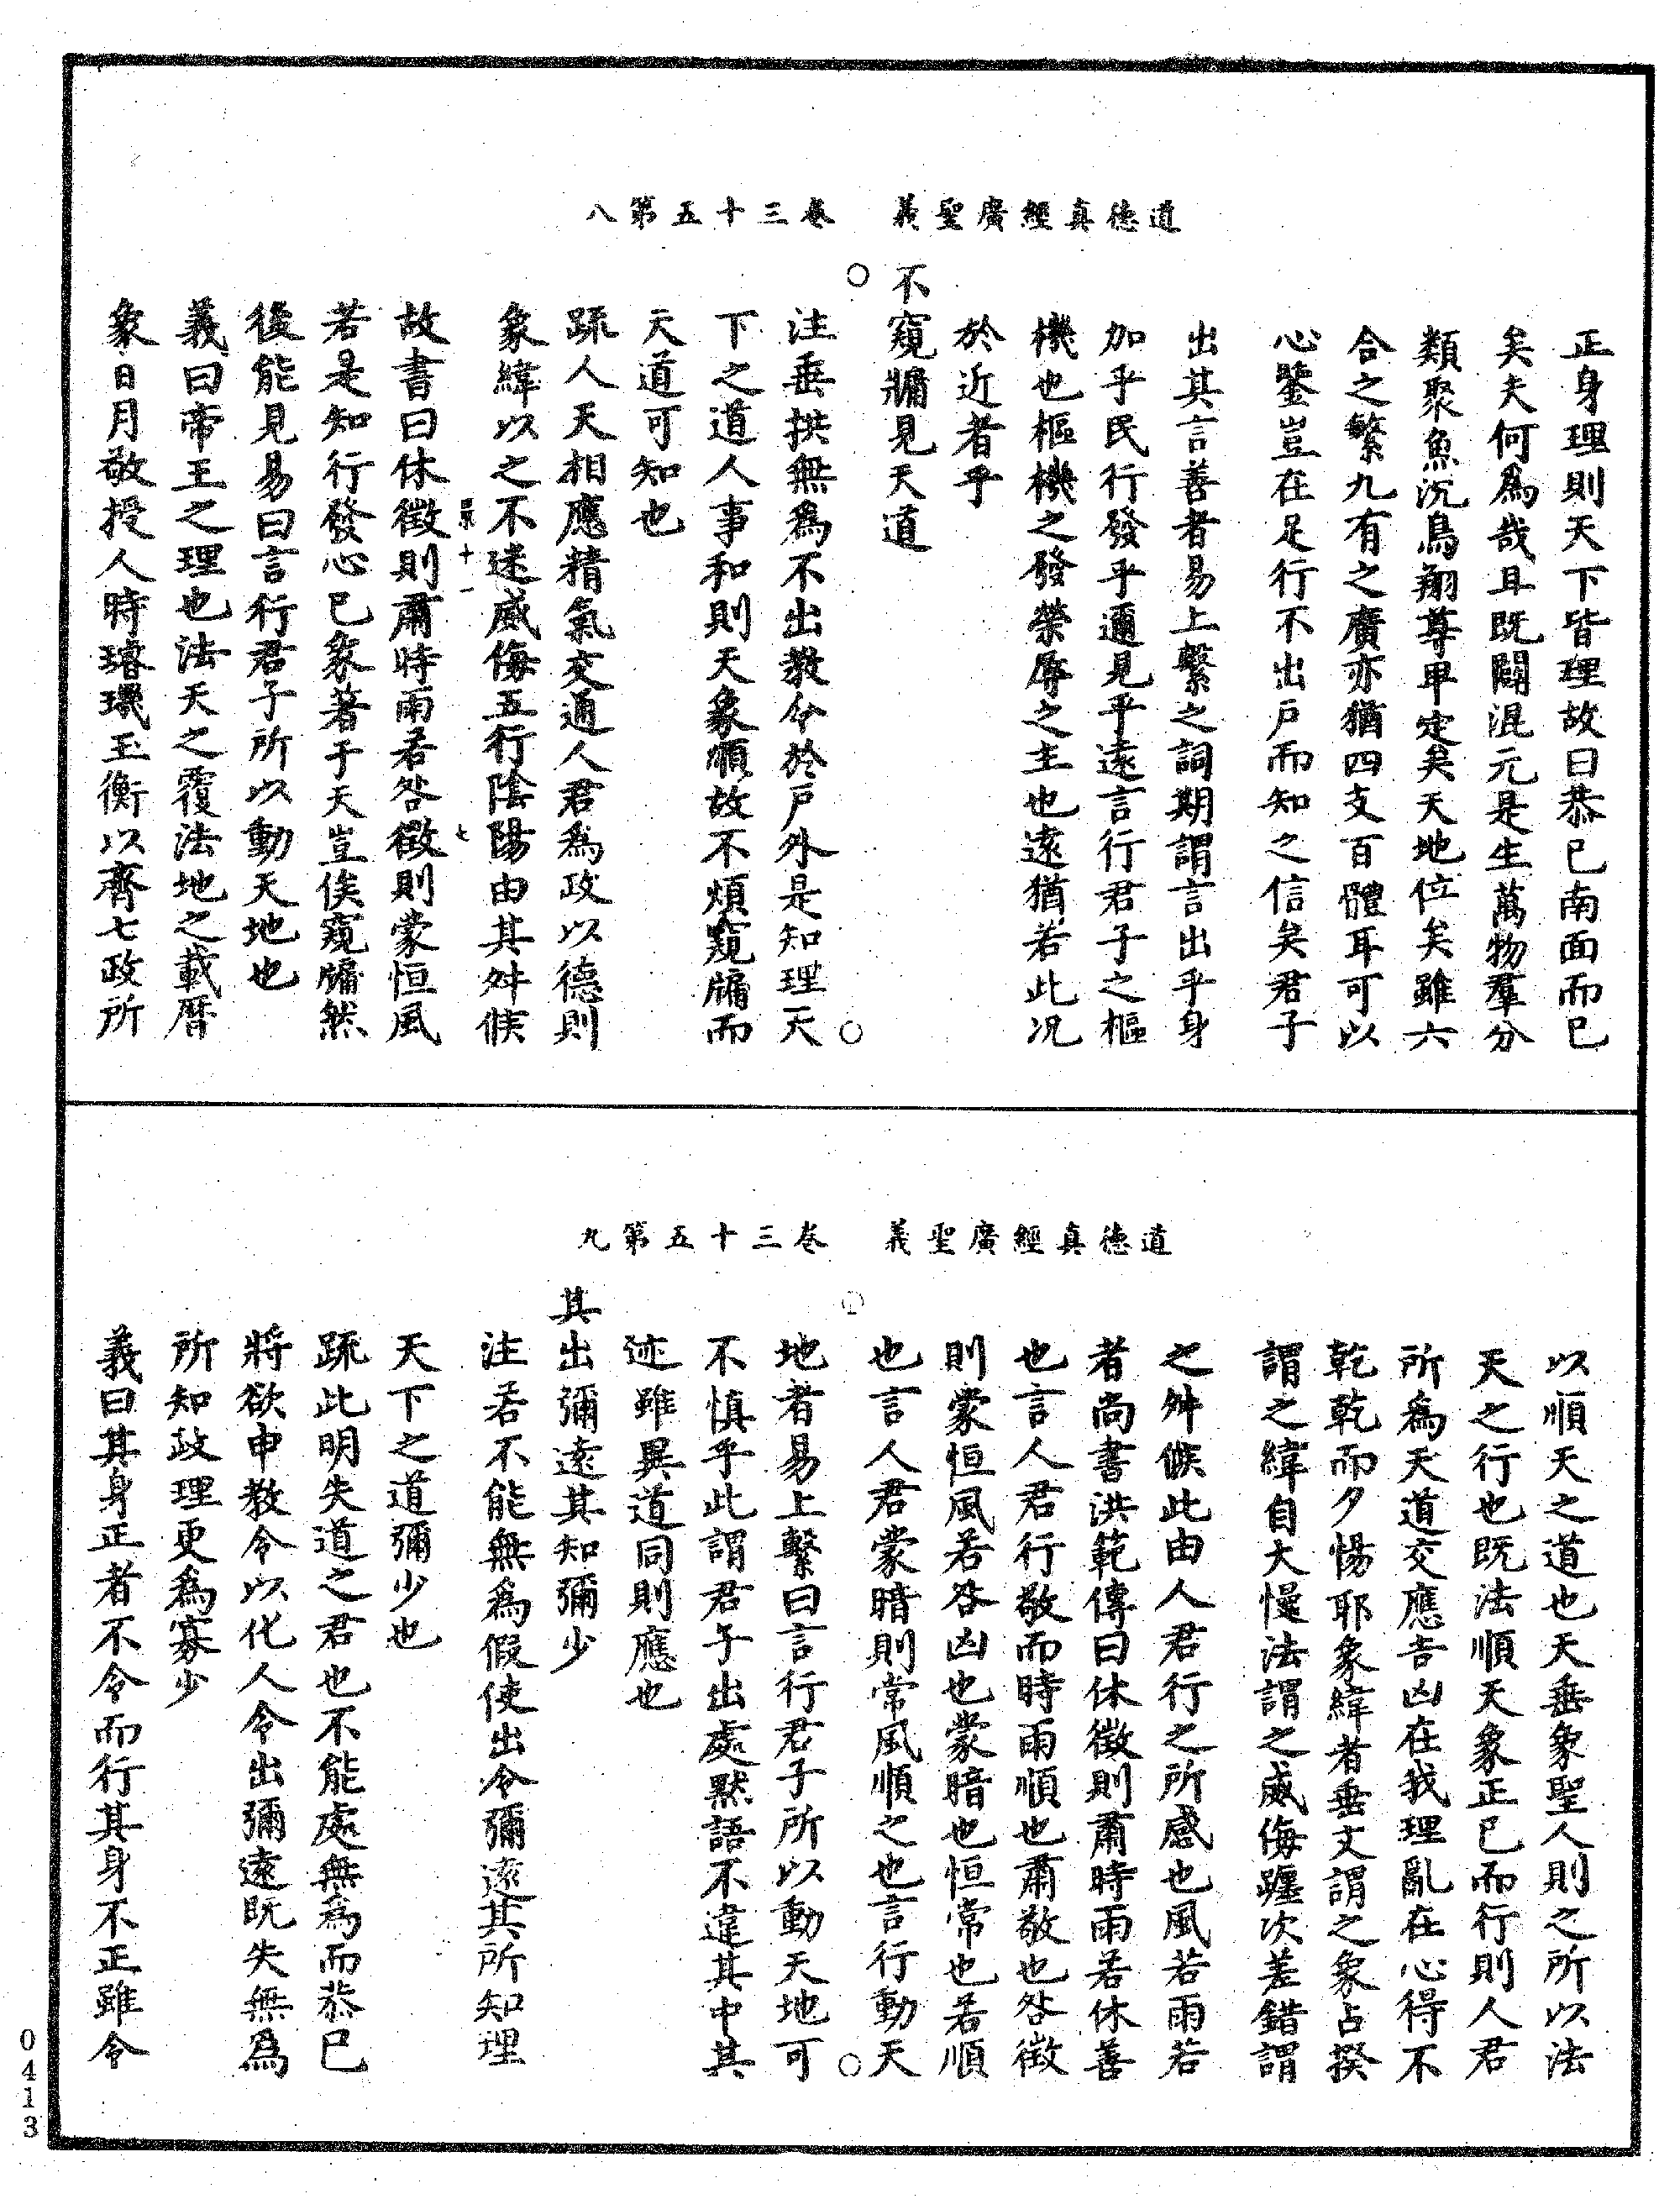 道德真經廣聖義　卷三十五第八
正身理則天下皆理故曰恭已南面而已
矣夫何為哉且既闢混元是生萬物羣分
類聚魚沉鳥翔尊卑定矣天地位矣雖六
合之繁九有之廣亦猶四支百體耳可以
心鑒豈在足行不出戶而知之信矣君子
出其言善者易上繫之詞期謂言出乎身
加乎民行發乎邇見乎遠言行君子之樞
機也樞機之發榮辱之主也遠猶若此况
於近者乎
不窺牖見天道
注垂拱無為不出教令於戶外是知理天
下之道人事和則天象順故不煩窺牖而
天道可知也
疏人天相應精氣交通人君為政以德則
象緯以之不迷威侮五行陰陽由其舛候
十一　七
故書曰休徵則肅時雨若咎徵則蒙恒風
若是知行發心已象著于天豈俟窺牖然
後能見易曰言行君子所以動天地也
義曰帝王之理也法天之覆法地之載曆
象日月敬授人時璿璣玉衡以齊七政所
道德真經廣聖義　卷三十五第九
以順天之道也天垂象聖人則之所以法
天之行也既法順天象正已而行則人君
所為天道交應吉凶在我理亂在心得不
乾乾而夕惕耶象緯者垂文謂之象占揆
謂之緯自大慢法謂之威侮躔次差錯謂
之舛候此由人君行之所感也風若雨若
者尚書洪範傳曰休徵則肅時雨若休善
也言人君行敬而時雨順也肅敬也咎徵
則蒙恒風若咎凶也蒙暗也恒常也若順
也言人君蒙暗則常風順之也言行動天
地者易上繫曰言行君子所以動天地可
不慎乎此謂君子出處默語不違其中其
迹雖異道同則應也
其出彌遠其知彌少
注若不能無為假使出令彌遠其所知理
天下之道彌少也
疏此明失道之君也不能處無為而恭已
將欲申教令以化人令出彌遠既失無為
所知政理更為寡少
義曰其身正者不令而行其身不正雖令
0413